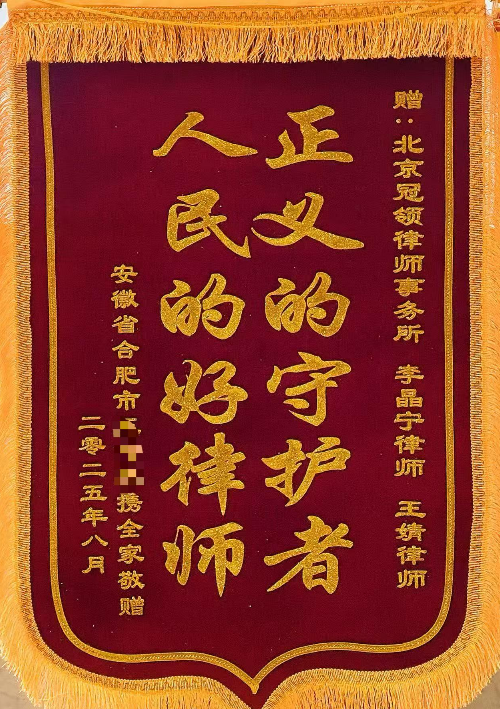 赠:北京冠领律师事务所 李晶宁律师 王婧律师
正义的守护者
人民的好律师
安徽省合肥市 携全家敬赠
二零二五年八月